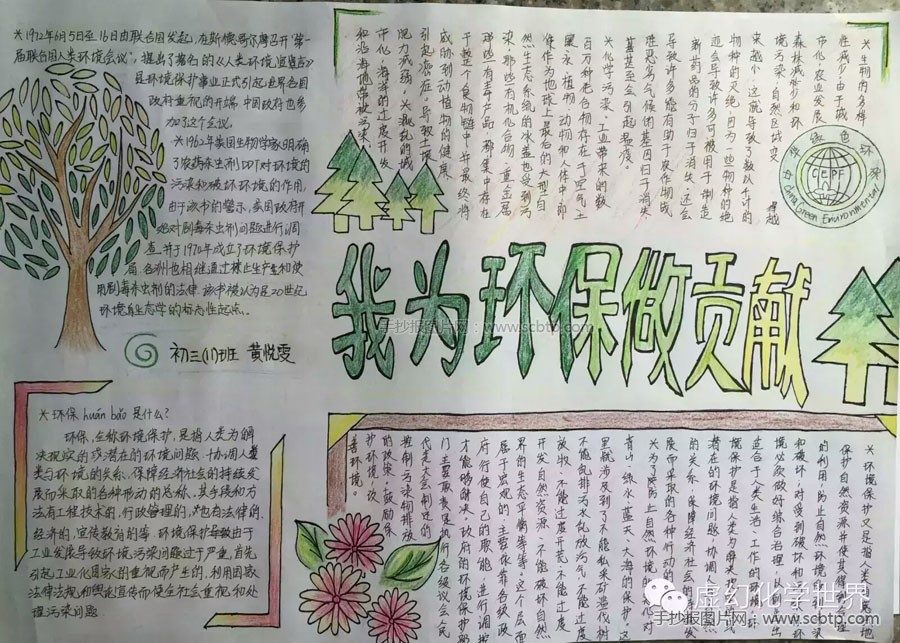 ※1972年6月5日至16日由联合国发起,在斯德哥尔摩召开"第一
届联合国人类环境会议",提出了著名的《人类环境宣言》
是环境保护事业正式引起世界各国
政府重视的开端,中国政府也参
加了这个会议。
※1962年美国生物学家明确
了农药杀虫剂DDT对环境的
污染和破坏环境的作用,
由于该书的警示,美国政府开
始对剧毒杀虫剂问题进行调
查,并于1970年成立了环境保护
局,各州也相继通过禁止生产和使
用剧毒杀虫剂的法律。该书被认为是20世纪
环境生态学的标志性起点。
初三(1)班 黄悦雯
※生物的多样
性减少:由于城
市化、农业发展、
森林减少和环
境污染,自然区域变
得越
来越小,这就导致了数以千计的
物种的灭绝。因为一些物种的绝
迹会导致许多可被用于制造
新药品的分子归于消失,还会
导致许多能有助于农作物战
胜恶劣气候的基因归于消失
甚至会引起瘟疫。
※化学污染:工业带来的数
百万种化合物存在于空气、土
壤、水、植物、动物和人体中。即
使作为地球上最后的大型自
然生态系统的冰盖也受到污
染。那些有机化合物、重金属、
那些有毒产品,都集中存在
于整个食物链中,并最终将
威胁到动植物的健康,
引起癌症。导致土壤
肥力减弱。※混乱的城
市化:海洋的过度开发
和沿海地带被污染。
中华绿色环保
CEPF
China Green Environmental
我为环保做贡献
手抄报图片网:www.scbtp.com
※环保 huán bǎo 是什么?
环保,全称环境保护,是指人类为解
决现实的或潜在的环境问题,协调人
类与环境的关系,保障经济社会的持续发
展而采取的各种形动的总称。其手段和方
法有工程技术的、行政管理的,也有法律的、
经济的、宣传教育的等。环境保护导致由于
工业发展导致环境污染问题过于严重,首先
引起工业化国家的重视而产生的,利用国家
法律法规和舆论宣传而使全社会重视和处
理污染问题
※环境保护又是指人类有意识地
保护自然资源并使其得到合理
的利用,防止自然环境受到污染
和破坏;对受到破坏和污染的环
境必须做好综合治理,以创造出
适合于人类生活、工作的环境。环
境保护是指人类为解决现实的或潜
在的环境问题,协调人类与环境
的关系,保障经济社会的持续发
展而采取的各种行动的总称。
※为了防止自然环境的恶化,对
青山、绿水、蓝天、大海的保护。这
里就涉及到了不能私采滥伐树
不能乱排污水乱放污气、不能过度
放牧、不能过度开荒、不能过度
开发自然资源、不能破坏自然
界的生态平衡等等,这个层面
属于宏观的,主要依靠各级政
府行使自己的职能、进行调控,
才能够解决。政府的环境保护部
门主要职责是执行各级议会(人民
代表大会)制定的
控制污染物排放
的政策,鼓励保
护环境,改
善环境。
虚幻化学世界
手抄报图片网:www.scbtp.com